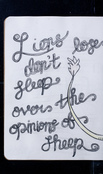 Lions lose
don't
sleep
over the
opinions of
sheep